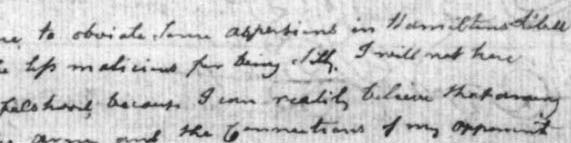 to obviate some aspersions in Hamiltons Libell
less malicious for being silly. I will not here
falshood, because I can readily believe that among
and the Connections of my opponent